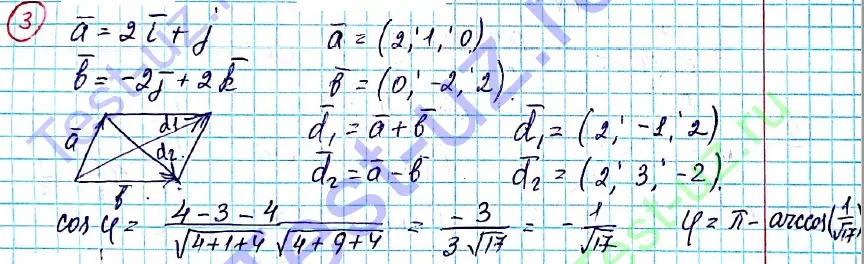 3
a̅ = 2i̅ + j a̅ = (2; 1; 0)
b̅ = -2j̅ + 2k̅ b̅ = (0; -2; 2)
a̅ d1 d2 b̅
d̅₁ = a̅ + b̅ d̅₁ = (2; -1; 2)
d̅₂ = a̅ - b̅ d̅₂ = (2; 3; -2)
cos φ = (4-3-4)/(√(4+1+4) √(4+9+4)) = -3/(3√17) = -1/√17 φ = π - arccos(1/√17)
Test-uz.ru